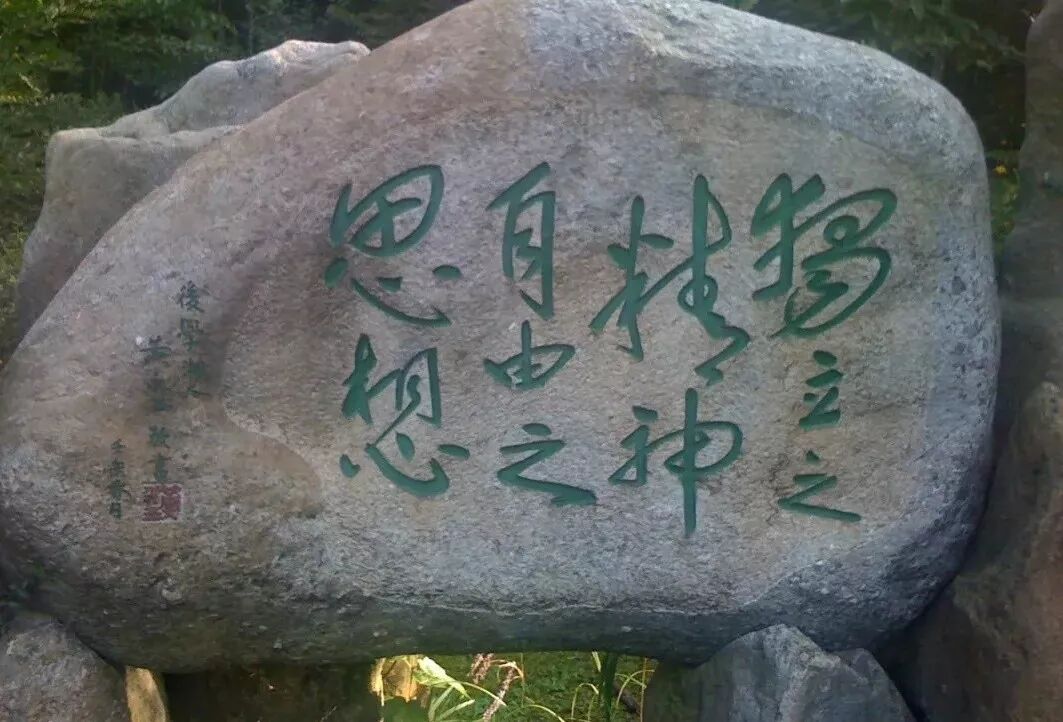 獨立之
精神
自由之
思想
後學
敬書